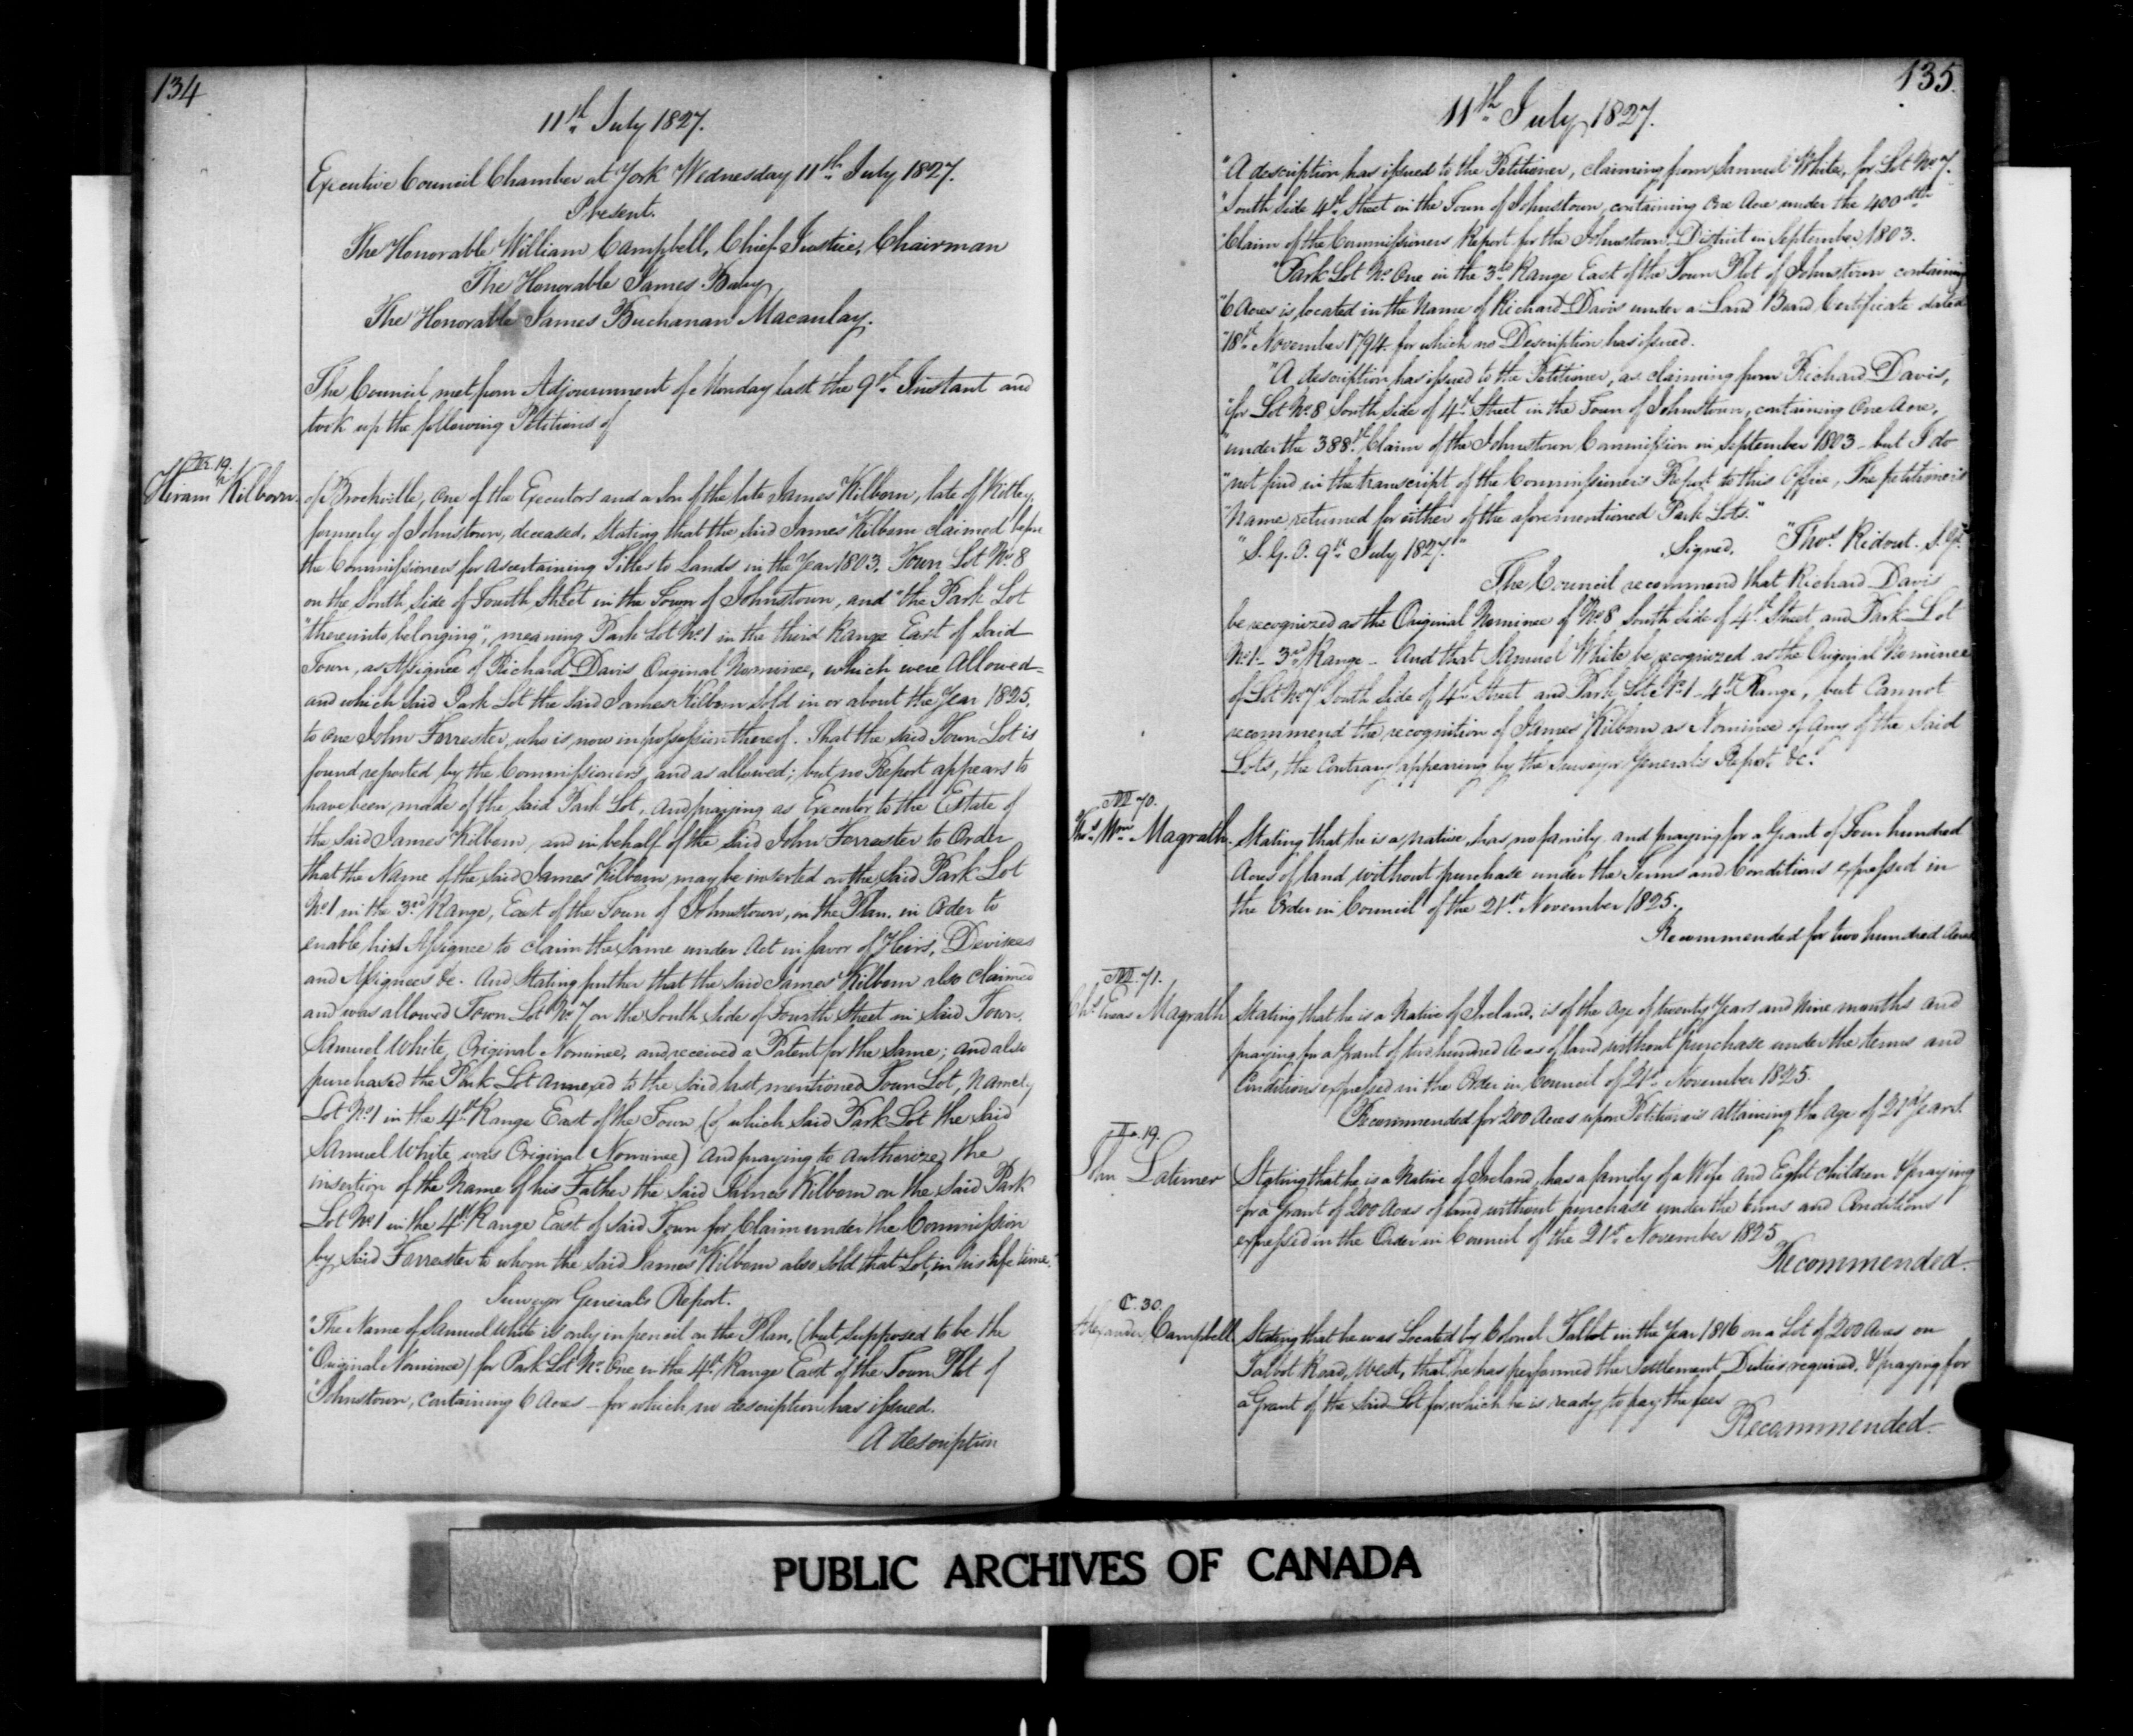 134
11th July 1827.
Executive Council Chamber at York Wednesday 11th July 1827.
Present.
The Honorable William Campbell, Chief Justice, Chairman
The Honorable James Baby
The Honorable James Buchanan Macaulay.
The Council met from Adjournment of Monday last the 9th Instant and
took up the following Petitions of
K. 19.
Hiram Kilborn.
of Brockville, One of the Executors and a Son of the late James Kilborn, late of Kitley,
formerly of Johnstown, deceased, Stating that the said James Kilborn claimed before
the Commissioners for ascertaining Titles to Lands in the Year 1803, Town Lot No. 8
on the South Side of Fourth Street in the Town of Johnstown, and "the Park Lot
"thereunto belonging", meaning Park Lot No 1 in the third Range East of Said
Town, as Assignee of Richard Davis Original Nominee, which were Allowed -
and which Said Park Lot the said James Kilborn Sold in or about the Year 1825,
to one John Forrester, who is now in possession thereof. That the said Town Lot is
found reported by the Commissioners, and as allowed; but no Report appears to
have been made of the said Park Lot, And praying as Executor to the Estate of
the said James Kilborn, and in behalf of the said John Forrester to Order
that the Name of the said James Kilborn may be inserted on the said Park Lot
No 1 in the 3rd Range, East of the Town of Johnstown, on the Plan, in Order to
enable his Assignee to claim the Same under Act in favor of Heirs, Devisees
and Assignees &c. And Stating further that the said James Kilborn also claimed
and was allowed Town Lot No 7 on the South Side of Fourth Street in Said Town,
Samuel White, Original Nominee, and received a Patent for the Same; and also
purchased the Park Lot annexed to the said last mentioned Town Lot, Namely
Lot No 1 in the 4th Range East of the Town (of which said Park Lot the Said
Samuel White was Original Nominee) And praying to authorize the
insertion of the Name of his Father the said James Kilborn on the said Park
Lot No 1 in the 4th Range East of said Town for Claim under the Commission
by said Forrester to whom the said James Kilborn also sold that Lot, in his life time."
Surveyor General's Report.
"The Name of Samuel White is only in pencil on the Plan, (but supposed to be the
"Original Nominee) for Park Lot No. One in the 4th Range East of the Town Plot of
"Johnstown, containing 6 Acres – for which no description has issued.
A description
135.
11th July 1827.
"A description has issued to the Petitioner, claiming from Samuel White, for Lot No 7.
"South Side 4th Street in the Town of Johnstown, containing One Acre under the 400dth
"Claim of the Commissioners Report for the Johnstown District in September 1803.
"Park Lot No. One in the 3rd Range East of the Town Plot of Johnstown containing
"6 Acres is located in the Name of Richard Davis under a Land Board Certificate dated
"18th November 1794 for which no Description has issued.
"A description has issued to the Petitioner, as claiming from Richard Davis,
"for Lot No 8 South Side of 4th Street in the Town of Johnstown, containing One Acre,
"under the 388th Claim of the Johnstown Commission in September 1803 – but I do
"not find in the transcript of the Commissioners Report to this Office, The petitioner's
"Name returned for either of the aforementioned Park Lots."
"S. G. O. 9th July 1827." Signed. "Thos. Ridout. S. Gl.
The Council recommend that Richard Davis
be recognized as the Original Nominee of No 8 South Side of 4th Street and Park Lot
No 1 – 3rd Range – And that Samuel White be recognized as the Original Nominee
of Lot No 7 South Side of 4th Street and Park Lot No 1 – 4th Range, but Cannot
recommend the recognition of James Kilborn as Nominee of any of the Said
Lots, the Contrary appearing by the Surveyor General's Report &c.
M 70.
Wm. Magrath.
Stating that he is a native, has no family and praying for a Grant of Four hundred
Acres of land without purchase under the Terms and Conditions expressed in
the Order in Council of the 21st November 1825.
Recommended for two hundred Acres
M. 71.
Magrath
Stating that he is a Native of Ireland, is of the Age of twenty Years and Nine months and
praying for a Grant of two hundred Acres of land without purchase under the terms and
Conditions expressed in the Order in Council of 21st November 1825.
Recommended for 200 Acres upon Petitioners attaining the Age of 21 Years.
L. 19.
John Latimer
Stating that he is a Native of Ireland, has a family of a Wife and Eight Children & praying
for a Grant of 200 Acres of land without purchase under the terms and Conditions
expressed in the Order in Council of the 21st November 1825
Recommended.
C. 30.
Alexander Campbell
Stating that he was Located by Colonel Talbot in the Year 1816 on a Lot of 200 Acres on
Talbot Road, West, that he has performed the Settlement Duties required, & praying for
a Grant of the said Lot for which he is ready to pay the fees
Recommended.
PUBLIC ARCHIVES OF CANADA